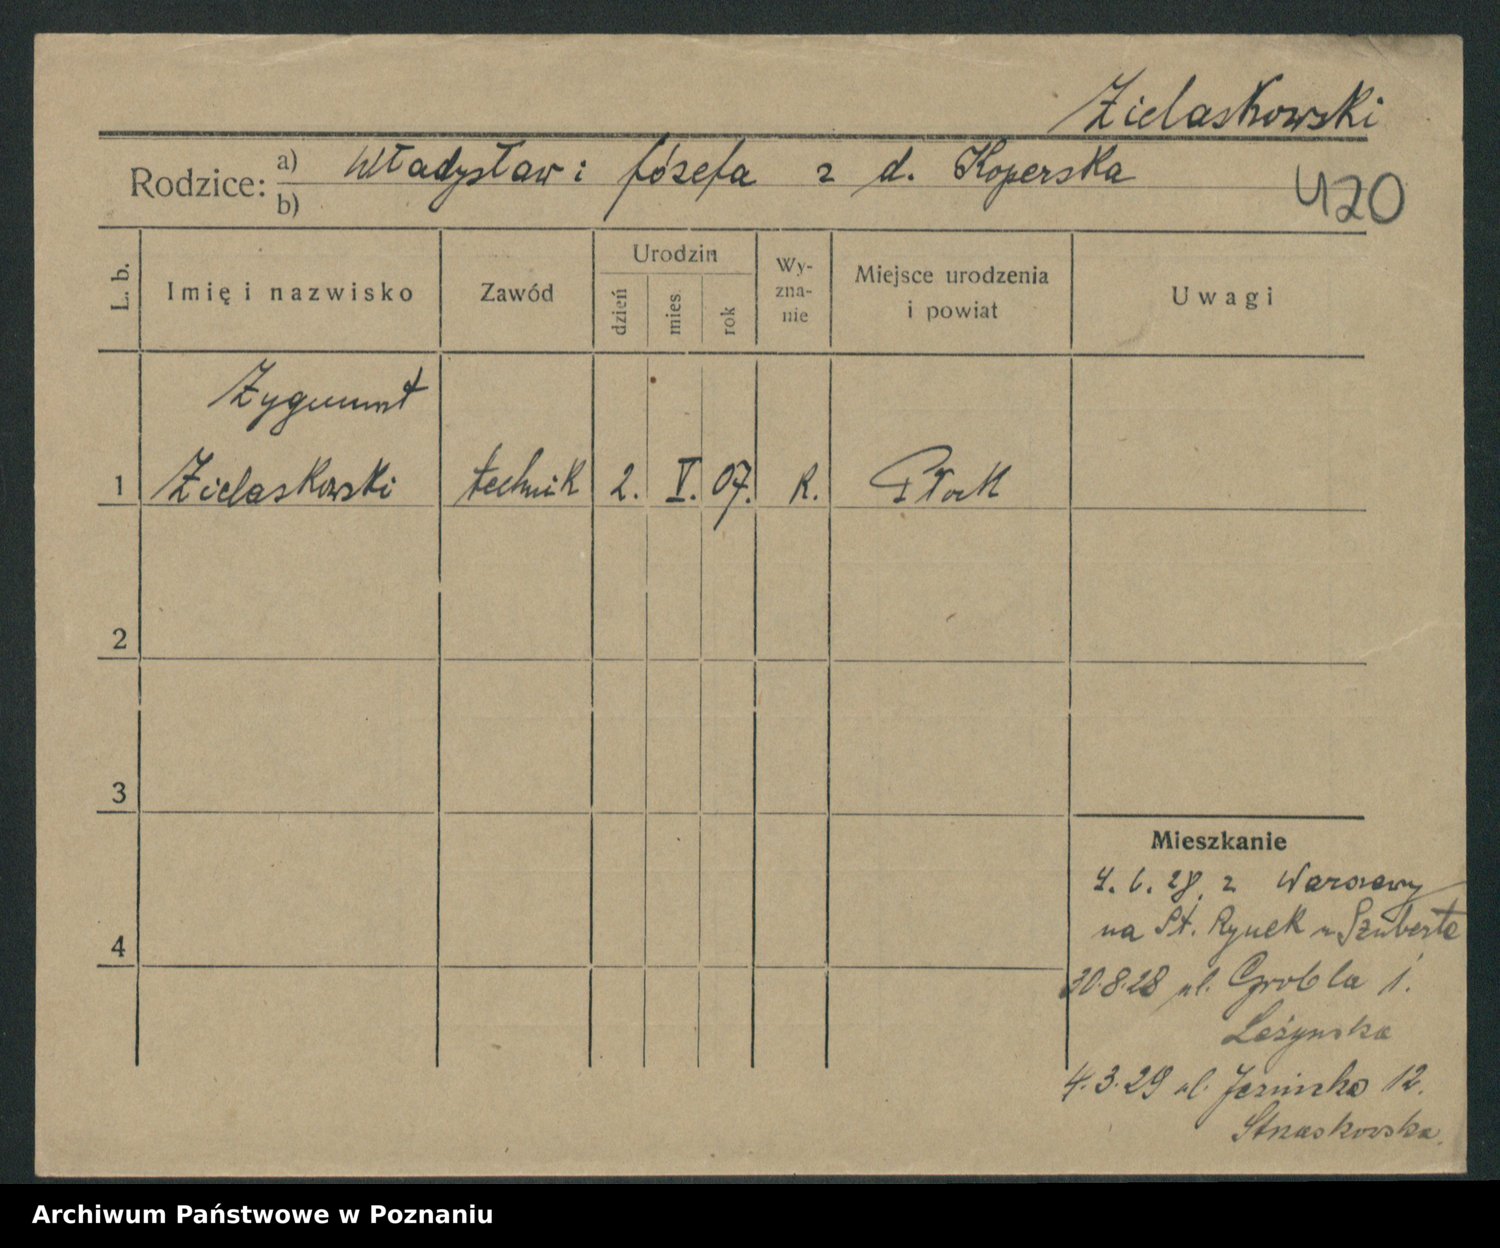 Zielaskowski
Rodzice: a) Władysław i Józefa z d. Koperska
b)
420
L. b.
Imię i nazwisko
Zawód
Urodzin
dzień
mies.
rok
Wy-
zna-
nie
Miejsce urodzenia
i powiat
Uwagi
Zygmunt
1 Zielaskowski technik 2. V. 07. R. Płock
2
3
4
Mieszkanie
4. 6. 28. z Warszawy
na St. Rynek u Szuberta
30.8.28 ul. Grobla 1.
Leżynska
4.3.29 ul. 12.
Archiwum Państwowe w Poznaniu